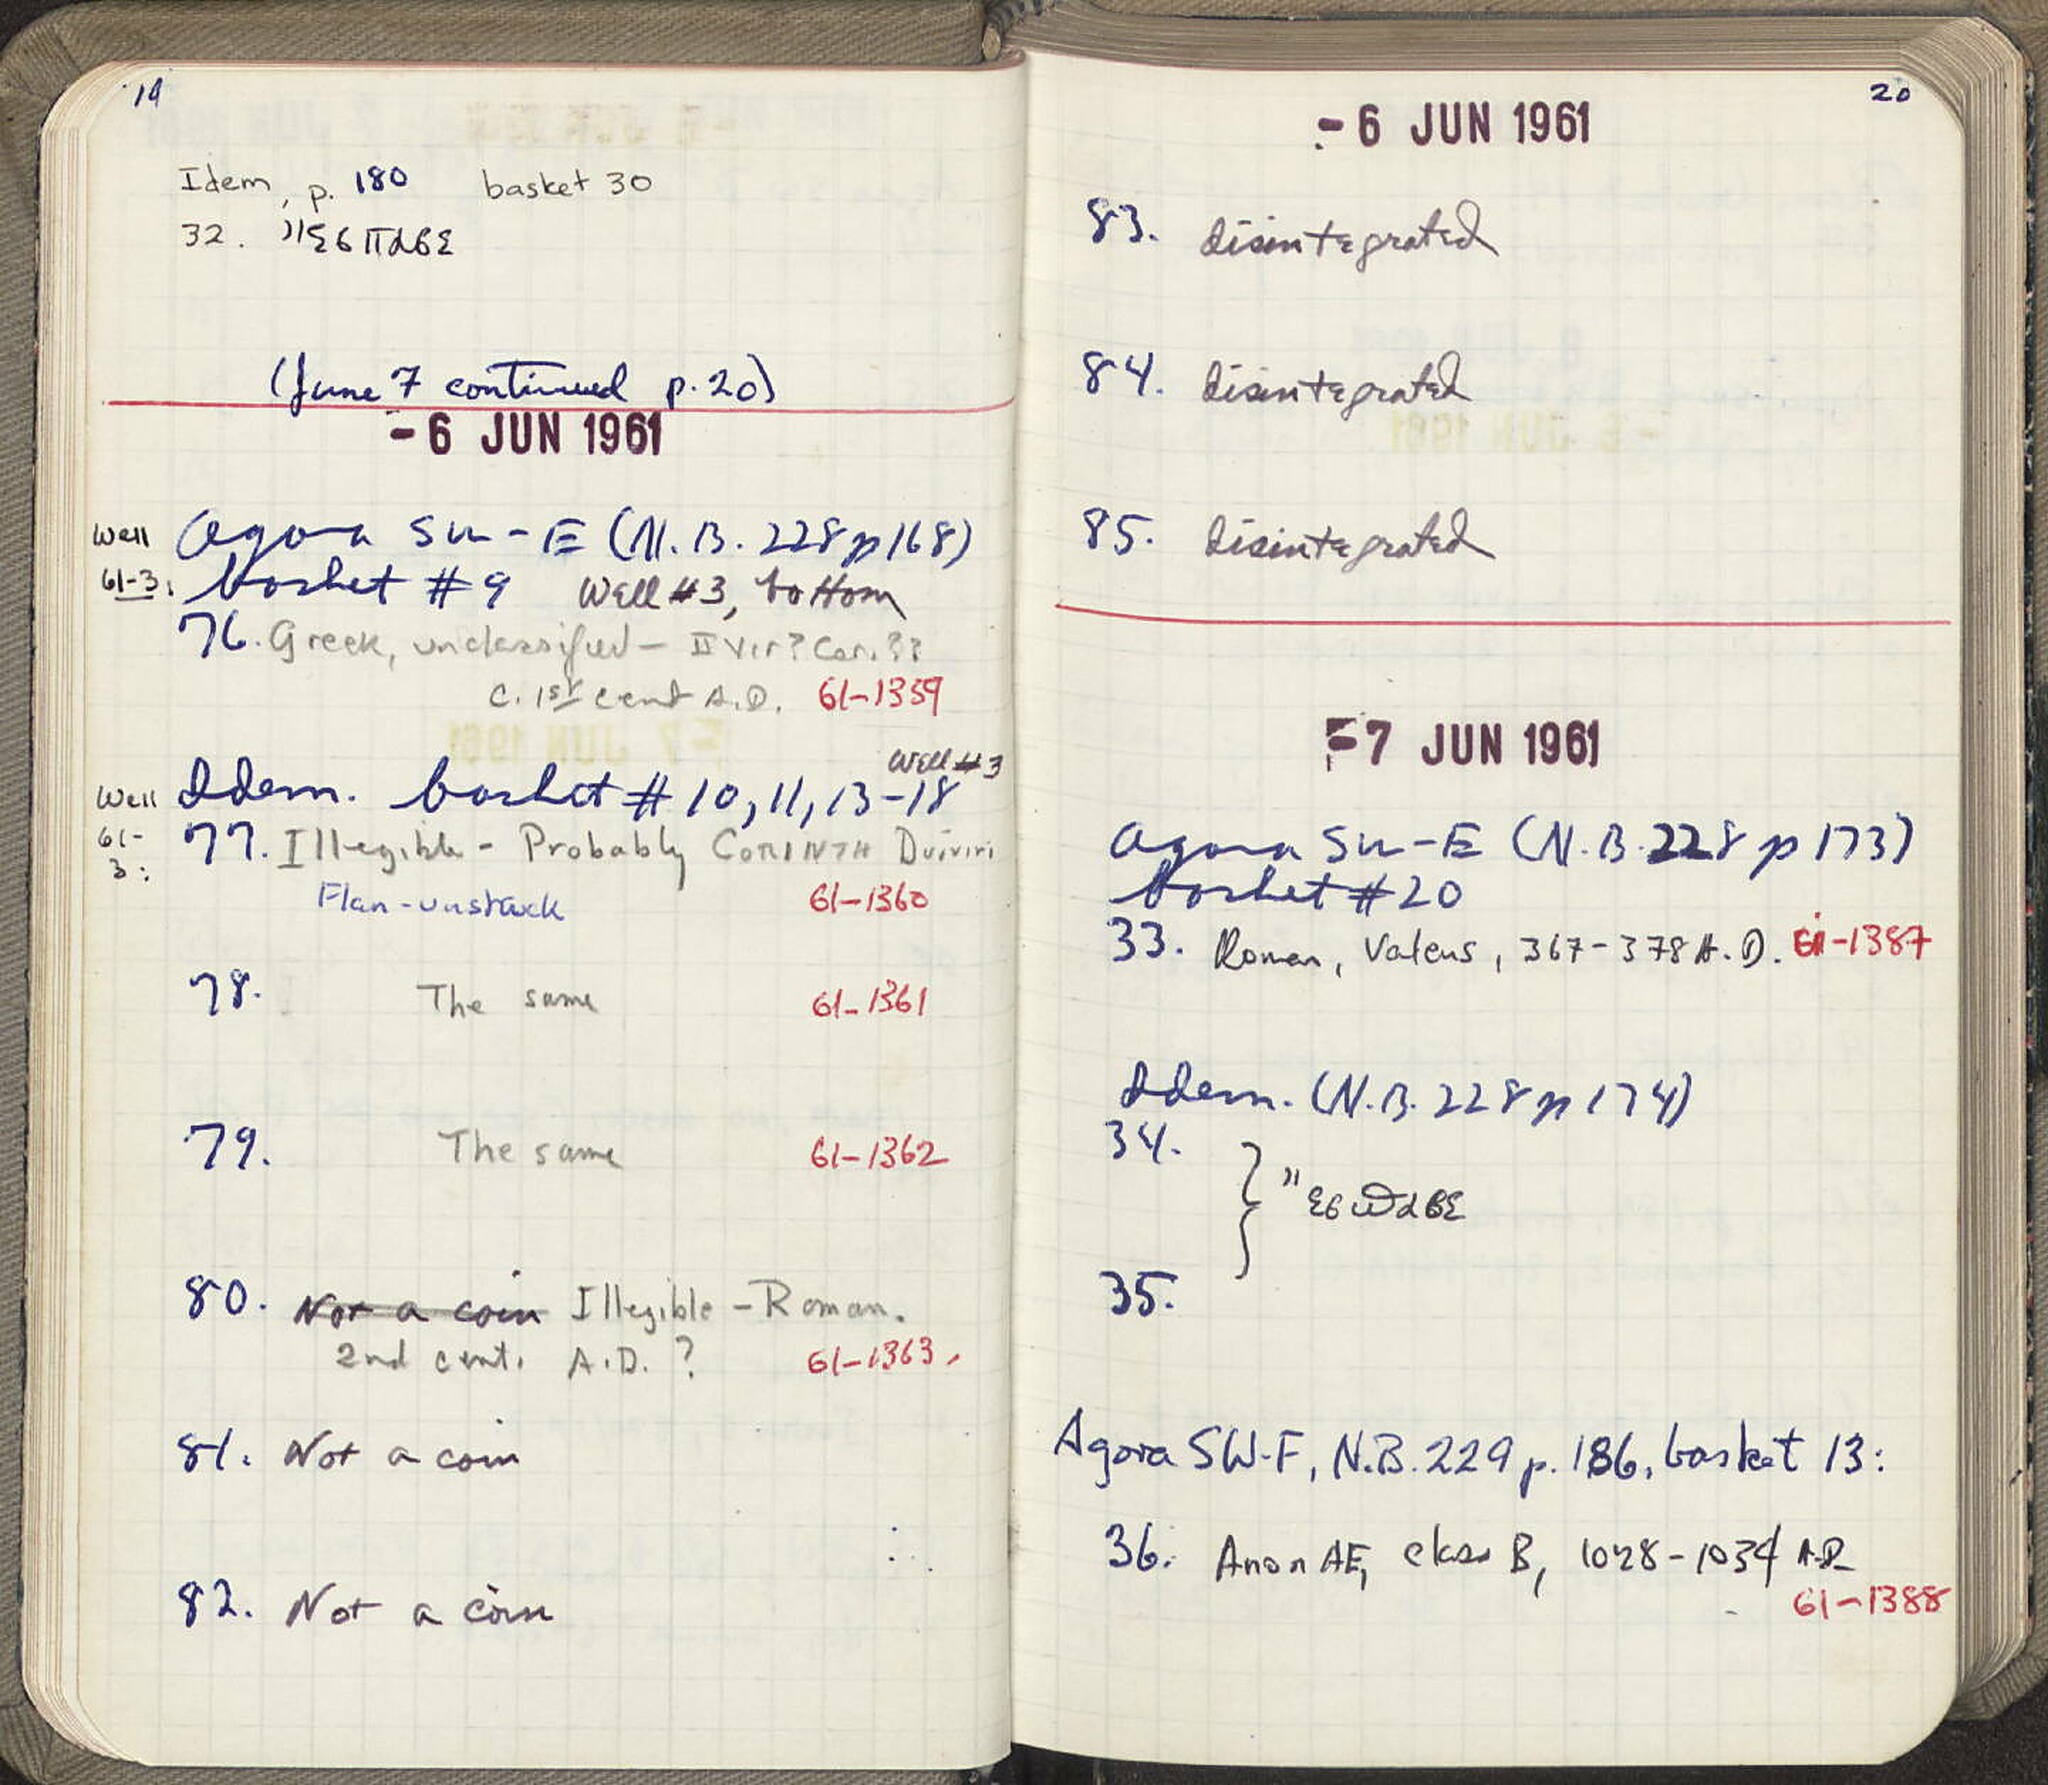 19
Idem, p. 180 basket 30
32.
(June 7 continued p. 20)
- 6 JUN 1961
Well Agora SW-E (N.B. 228 p 168)
61-3: basket # 9 Well #3, bottom
76. Greek, unclassified - II Vir? Cor.??
c. 1st cent A.D. 61-1359
Well #3
Well Idem. basket # 10, 11, 13-18
61-3: 77. Illegible - Probably CORINTH Duiviri
Flan-unstruck 61-1360
78. The same 61-1361
79. The same 61-1362
80. Not a coin Illegible - Roman.
2nd cent. A.D.? 61-1363
81. Not a coin
82. Not a coin
20
- 6 JUN 1961
83. disintegrated
84. disintegrated
85. disintegrated
- 7 JUN 1961
Agora SW-E (N.B. 228 p 173)
basket # 20
33. Roman, Valens, 367-378 A.D. 61-1387
Idem. (N.B. 228 p 174)
34.
35.
Agora SW-F, N.B. 229 p. 186, basket 13:
36. Anon AE, class B, 1028-1034 A.D.
61-1388